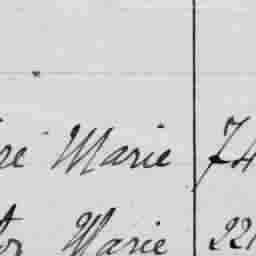 ré Marie 74
or Marie 221